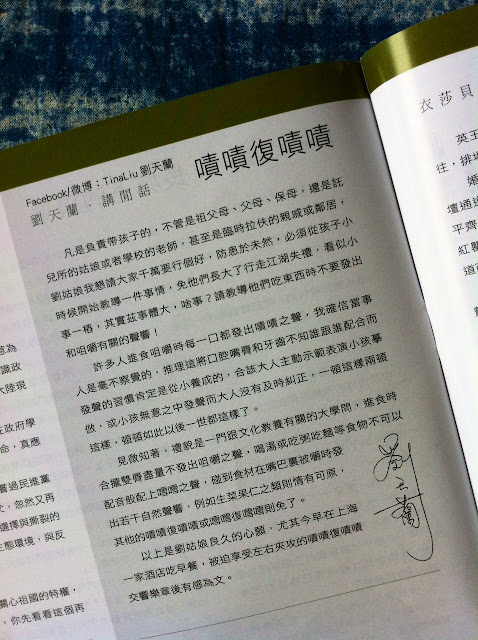 嘖嘖復嘖嘖
Facebook/微博：TinaLiu 劉天蘭
劉天蘭．講閒話
凡是負責帶孩子的，不管是祖父母、父母、保母，還是託
兒所的姑娘或者學校的老師，甚至是臨時拉伕的親戚或鄰居，
劉姑娘我懇請大家千萬要行個好，防患於未然，必須從孩子小
時候開始教導一件事情，免他們長大了行走江湖失禮，看似小
事一樁，其實茲事體大，啥事？請教導他們吃東西時不要發出
和咀嚼有關的聲響！
許多人進食咀嚼時每一口都發出嘖嘖之聲，我確信當事
人是毫不察覺的，推理這將口腔嘴唇和牙齒不知誰跟誰配合而
發聲的習慣肯定是從小養成的，合該大人主動示範表演小孩摹
倣，或小孩無意之中發聲而大人沒有及時糾正，一頓這樣兩頓
這樣，頓頓如此以後一世都這樣了。
見微知著，禮貌是一門跟文化教養有關的大學問，進食時
合攏雙唇盡量不發出咀嚼之聲，喝湯或吃粥吃麵等食物不可以
配音般配上嗗嗗之聲，碰到食材在嘴巴裏被嚼時發
出若干自然聲響，例如生菜果仁之類則情有可原，
其他的嘖嘖復嘖嘖或嗗嗗復嗗嗗則免了。
以上是劉姑娘良久的心願，尤其今早在上海
一家酒店吃早餐，被迫享受左右夾攻的嘖嘖復嘖嘖
交響樂章後有感為文。
劉天蘭
意為
識政
大陸現
在政府學
命，真應
嘗過民進黨
忽然又再
選擇與撕裂的
生態環境，與反
關心祖國的特權，
，你先看看這個再
衣莎貝
英王
往，排場
婚
壇通過
平齊
紅襲
道